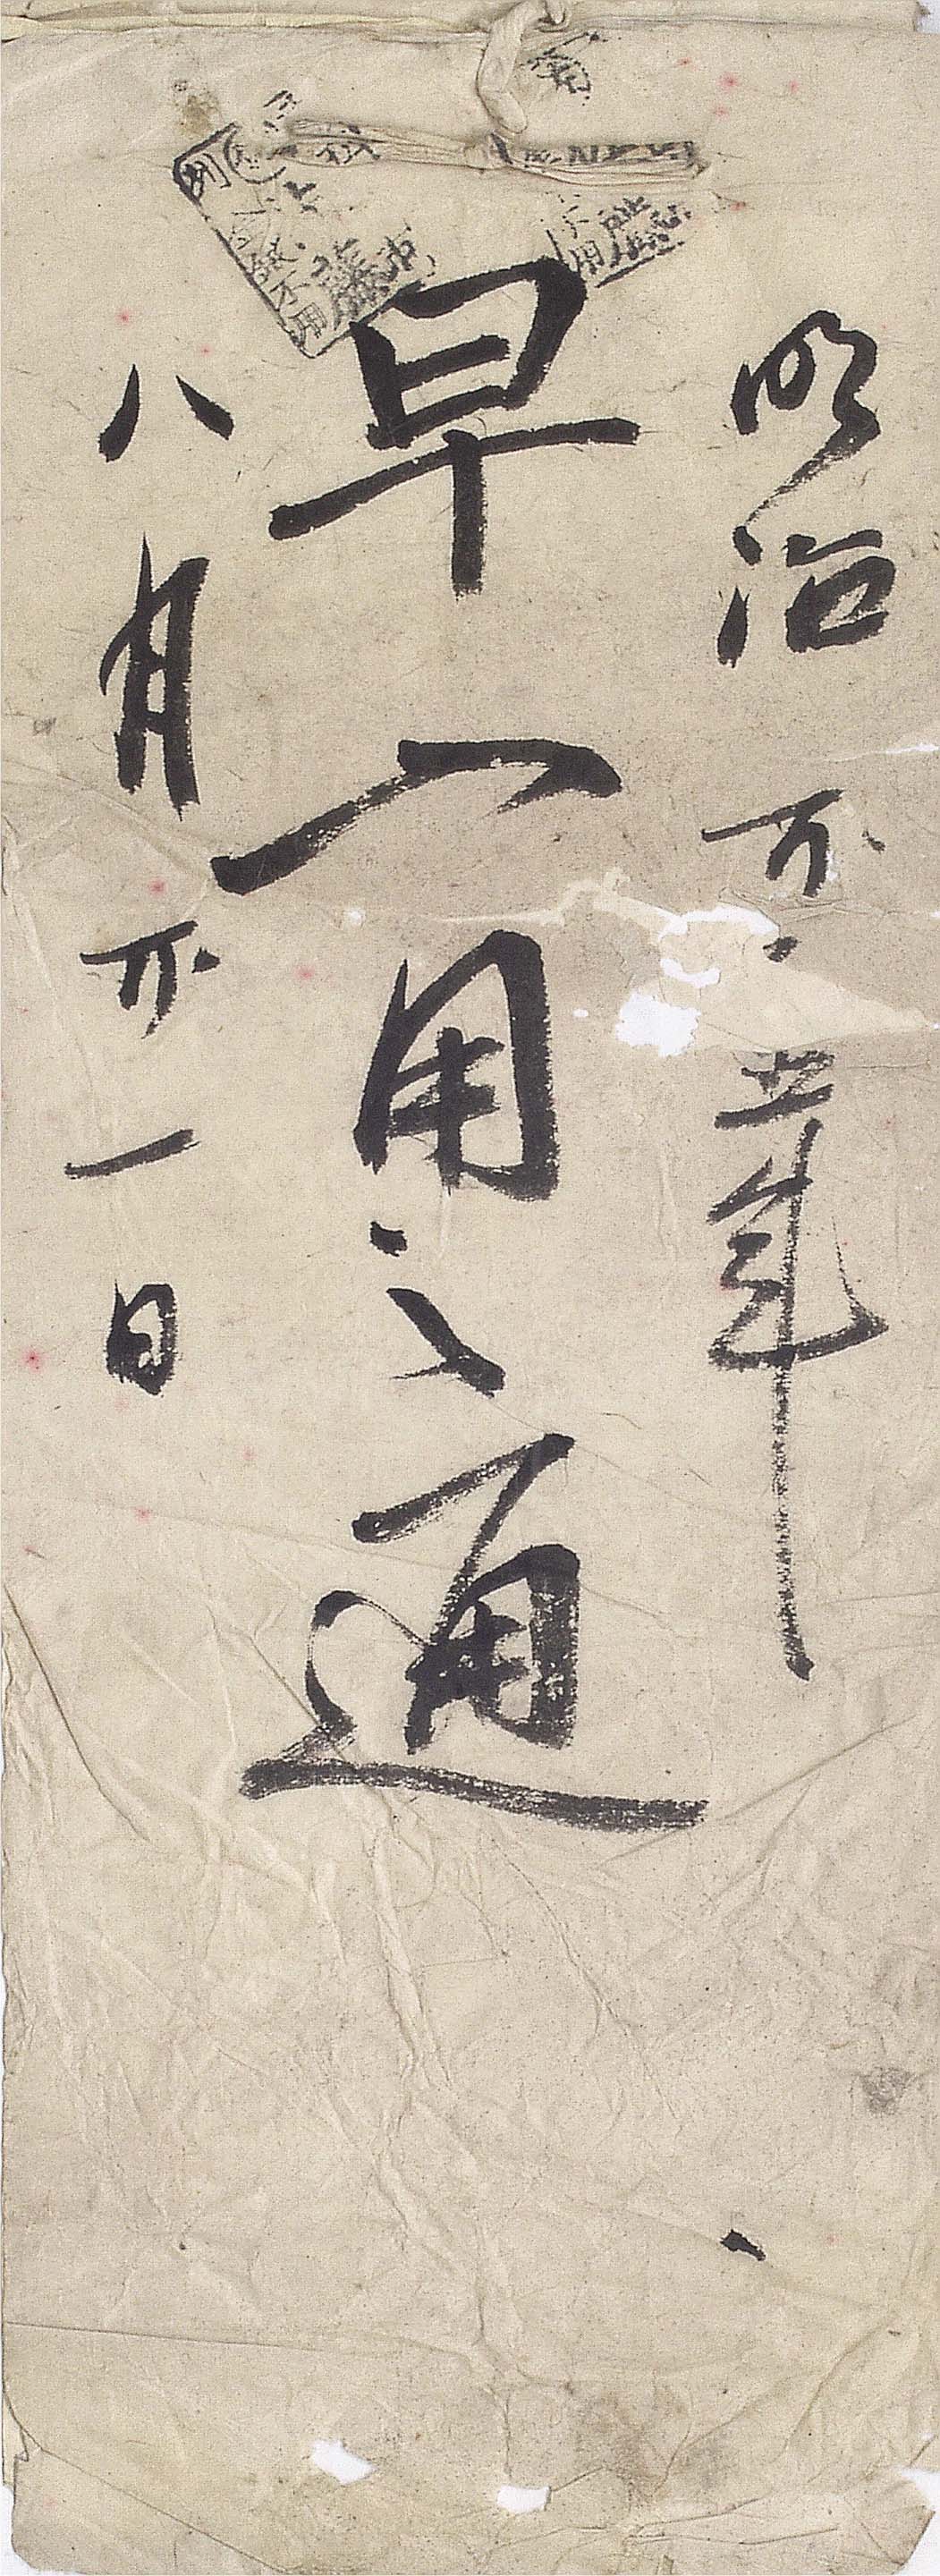 明治廿五年
早入用之通
八月廿一日